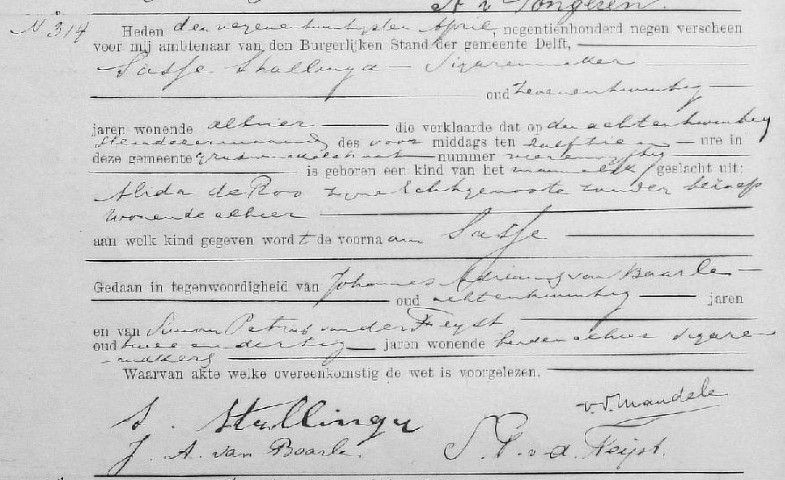 A. v. Tongeren.
No 314 Heden den negenentwintigsten April, negentienhonderd negen verscheen
voor mij ambtenaar van den Burgerlijken Stand der gemeente Delft,
Sasje Stallinga Sigarenmaker
oud zevenentwintig
jaren wonende alhier die verklaarde dat op den achtentwintig
dezer des voor middags ten ure in
deze gemeente nummer
is geboren een kind van het mannelijk geslacht uit:
Alida de Roo zijne Echtgenoote zonder beroep
wonende alhier
aan welk kind gegeven wordt de voornaam Sasje
Gedaan in tegenwoordigheid van Johannes Adrianus van Baarle
oud achtentwintig jaren
en van Simon Petrus van der Feyst
oud twee en dertig jaren wonende beiden alhier sigaren
makers
Waarvan akte welke overeenkomstig de wet is voorgelezen.
S. Stallinga v.d. Mandele
J. A. van Baarle. S. P. v. d. Feijst.